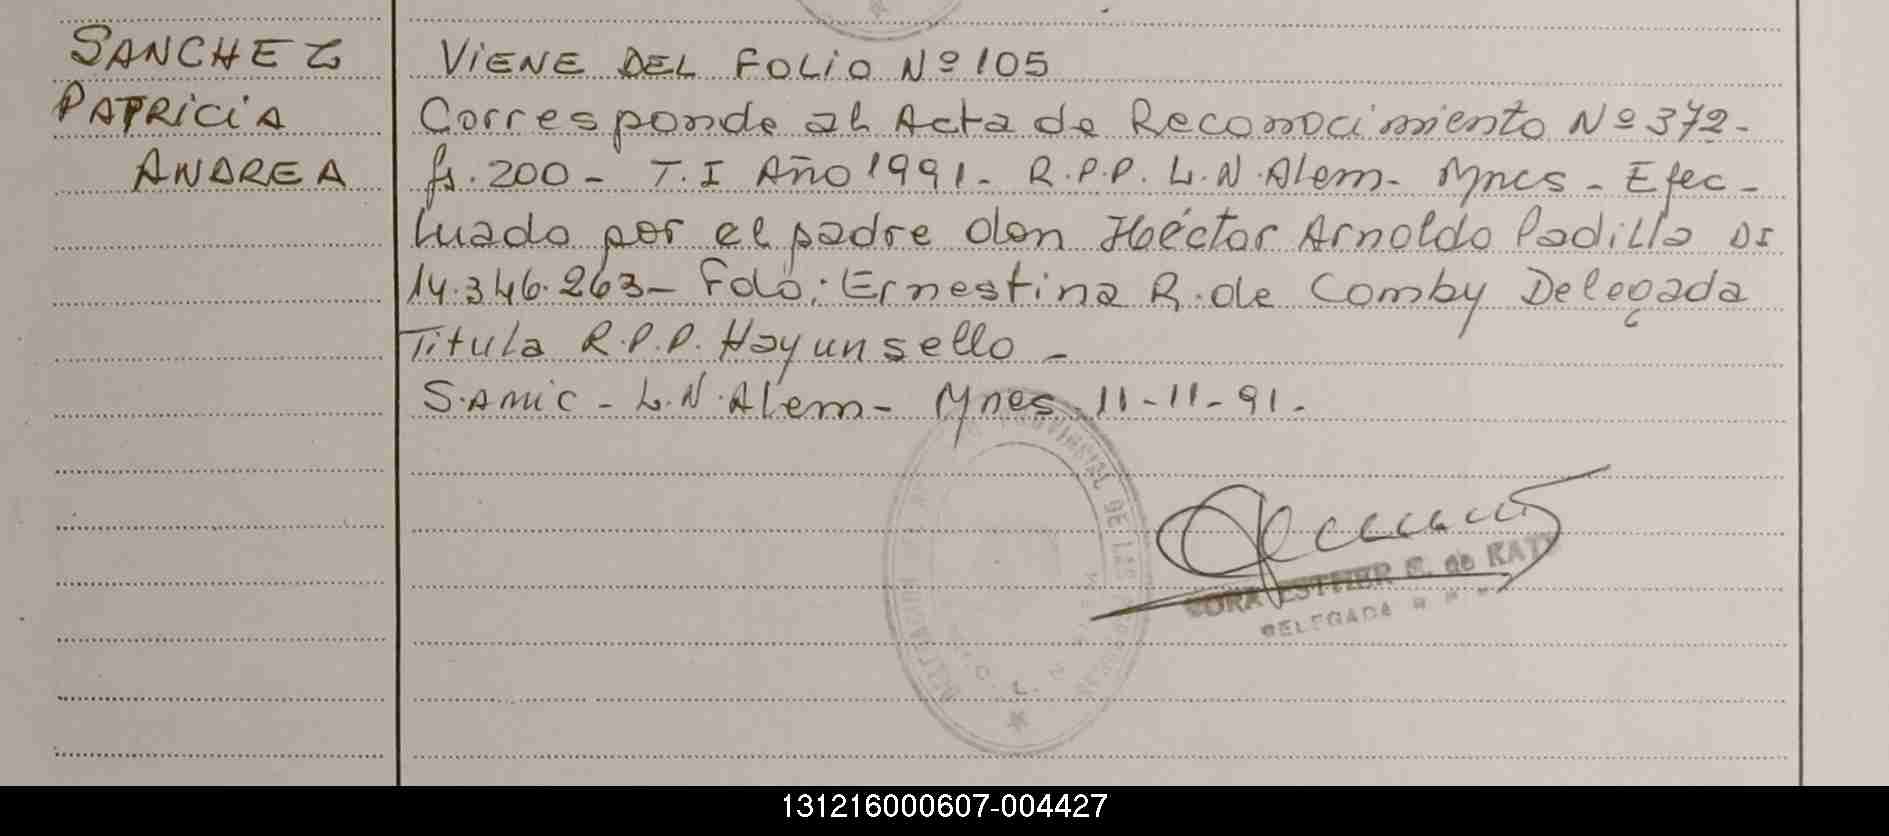 SANCHEZ
PATRICIA
ANDREA
ViENE DEL FOLiO Nº 105
Corresponde al Acta de Reconocimiento Nº 372-
fs. 200 - T. I Año 1991. R.P.P. L.N. Alem- Mnes - Efec-
tuado por el padre don Héctor Arnoldo Padilla DI
14.346.263- Fdo: Ernestina R. de Comby Delegada
Titula R.P.P. Hay un sello -
SAMIC - L.N. Alem- Mnes 11-11-91.
PROVINCIAL DE LAS PERSONAS
ESTHER E. de KATZ
DELEGADA
131216000607-004427